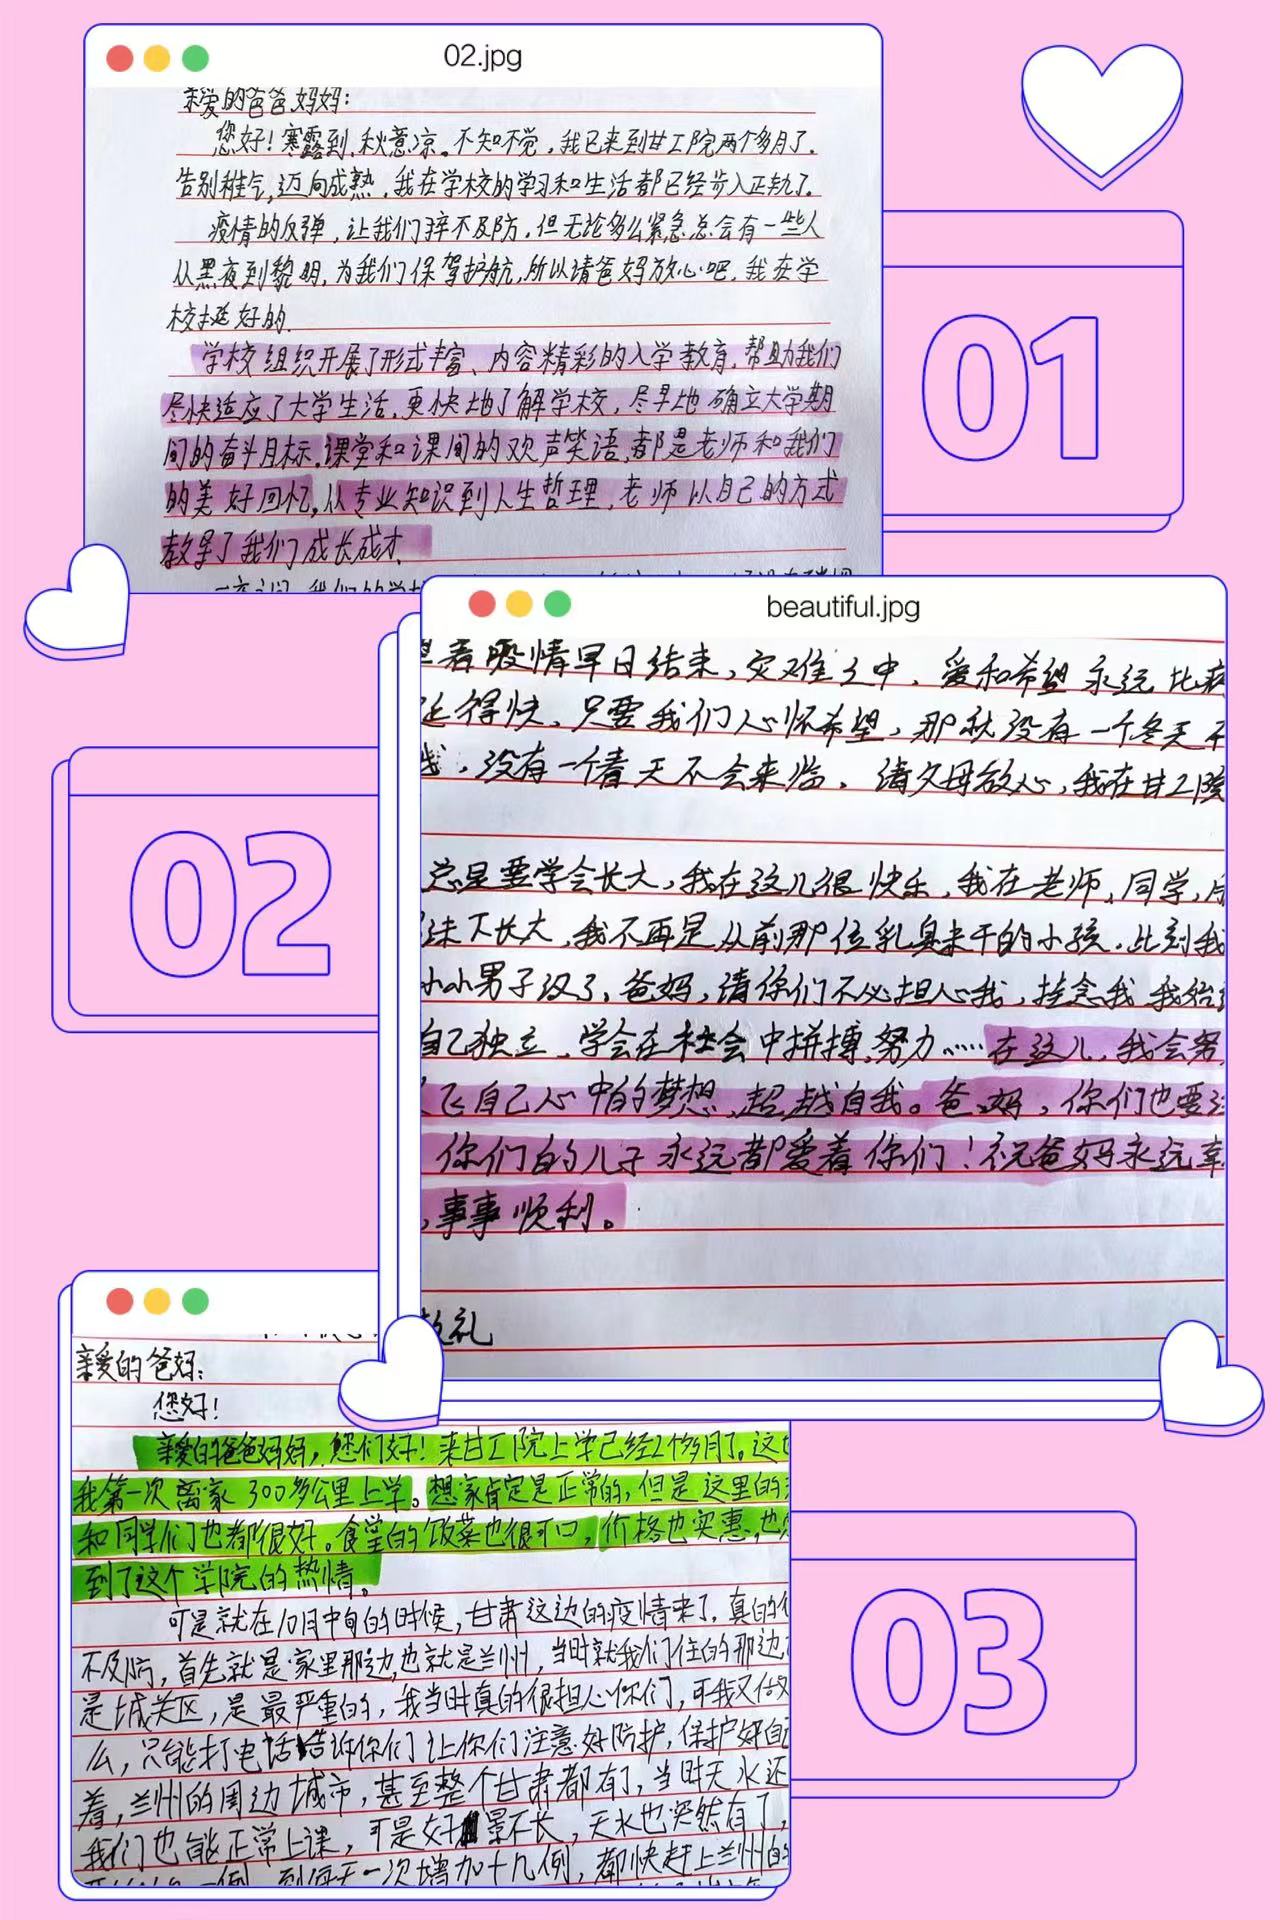 02.jpg
亲爱的爸爸妈妈:
您好!寒露到,秋意凉。不知不觉,我已来到甘工院两个多月了.
告别稚气,迈向成熟.我在学校的学习和生活都已经步入正轨了.
疫情的反弹,让我们猝不及防,但无论多么紧急总会有一些人
从黑夜到黎明,为我们保驾护航,所以请爸妈放心吧.我在学
校挺好的.
学校组织开展了形式丰富、内容精彩的入学教育,帮助我们
尽快适应了大学生活,更快地了解学校,尽早地确立大学期
间的奋斗目标.课堂和课间的欢声笑语,都是老师和我们
的美好回忆,从专业知识到人生哲理,老师以自己的方式
教导了我们成长成才.
01
beautiful.jpg
着疫情早日结束,灾难之中、爱和希望永远比
得快、只要我们心怀希望,那就没有一个冬天不
,没有一个春天不会来临.请父母放心,我在甘工院
总是要学会长大,我在这儿很快乐,我在老师、同学,
下长大,我不再是从前那位乳臭未干的小孩.此刻我
小小男子汉了、爸妈,请你们不必担心我,挂念我我始
自己独立、学会在社会中拼搏、努力……在这儿、我会努
飞自己心中的梦想、超越自我。爸、妈,你们也要
你们的儿子永远都爱着你们!祝爸妈永远幸
、事事顺利。
敬礼
02
亲爱的爸妈:
您好!
亲爱的爸爸妈妈,您们好!来甘工院上学已经2个多月了。这
我第一次离家300多公里上学。想家肯定是正常的,但是这里的
和同学们也都很好。食堂的饭菜也很可口,价格也实惠,也
到了这个学院的热情。
可是就在10月中旬的时候,甘肃这边的疫情来了,真的
不及防,首先就是家里那边,也就是兰州,当时就我们住的那边
是城关区,是最严重的,我当时真的很担心你们,可我又做
么,只能打电话告诉你们让你们注意好防护,保护好自
着,兰州的周边城市,甚至整个甘肃都有了,当时天水还
我们也能正常上课,可是好景不长,天水也突然有了,
一例,到每天一次增加十几例,都快赶上兰州的
03